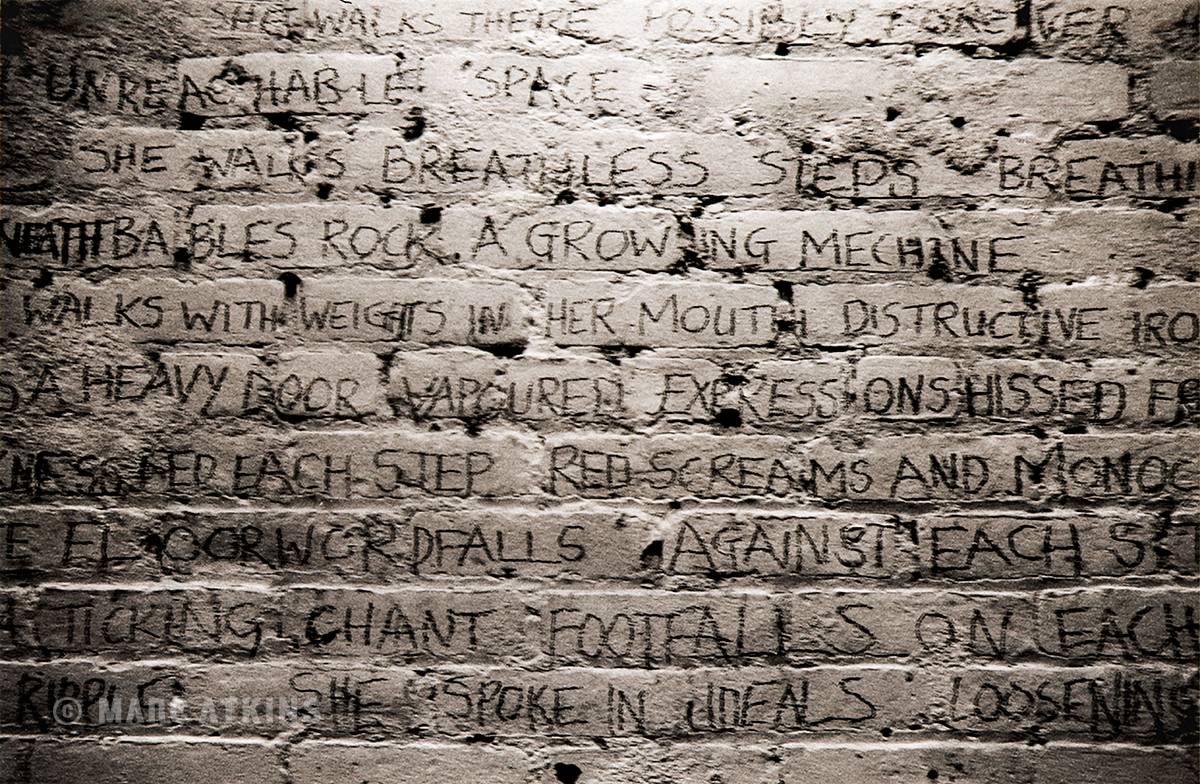 SHE WALKS THERE POSSIBLY FOREVER
UNREACHABLE SPACE
SHE WALKS BREATHLESS STEPS BREATHI
NEATH BABBLES ROCK. A GROWING MECHINE
WALKS WITH WEIGHTS IN HER MOUTH DISTRUCTIVE IRO
S A HEAVY DOOR VAPOURED EXPRESSIONS HISSED F
KNESS FED EACH STEP RED SCREAMS AND MONOC
E FLOOR WORDFALLS AGAINST EACH S
TICKING CHANT FOOTFALLS ON EACH
RIPPLE SHE SPOKE IN IDEALS LOOSENING
© MARC ATKINS